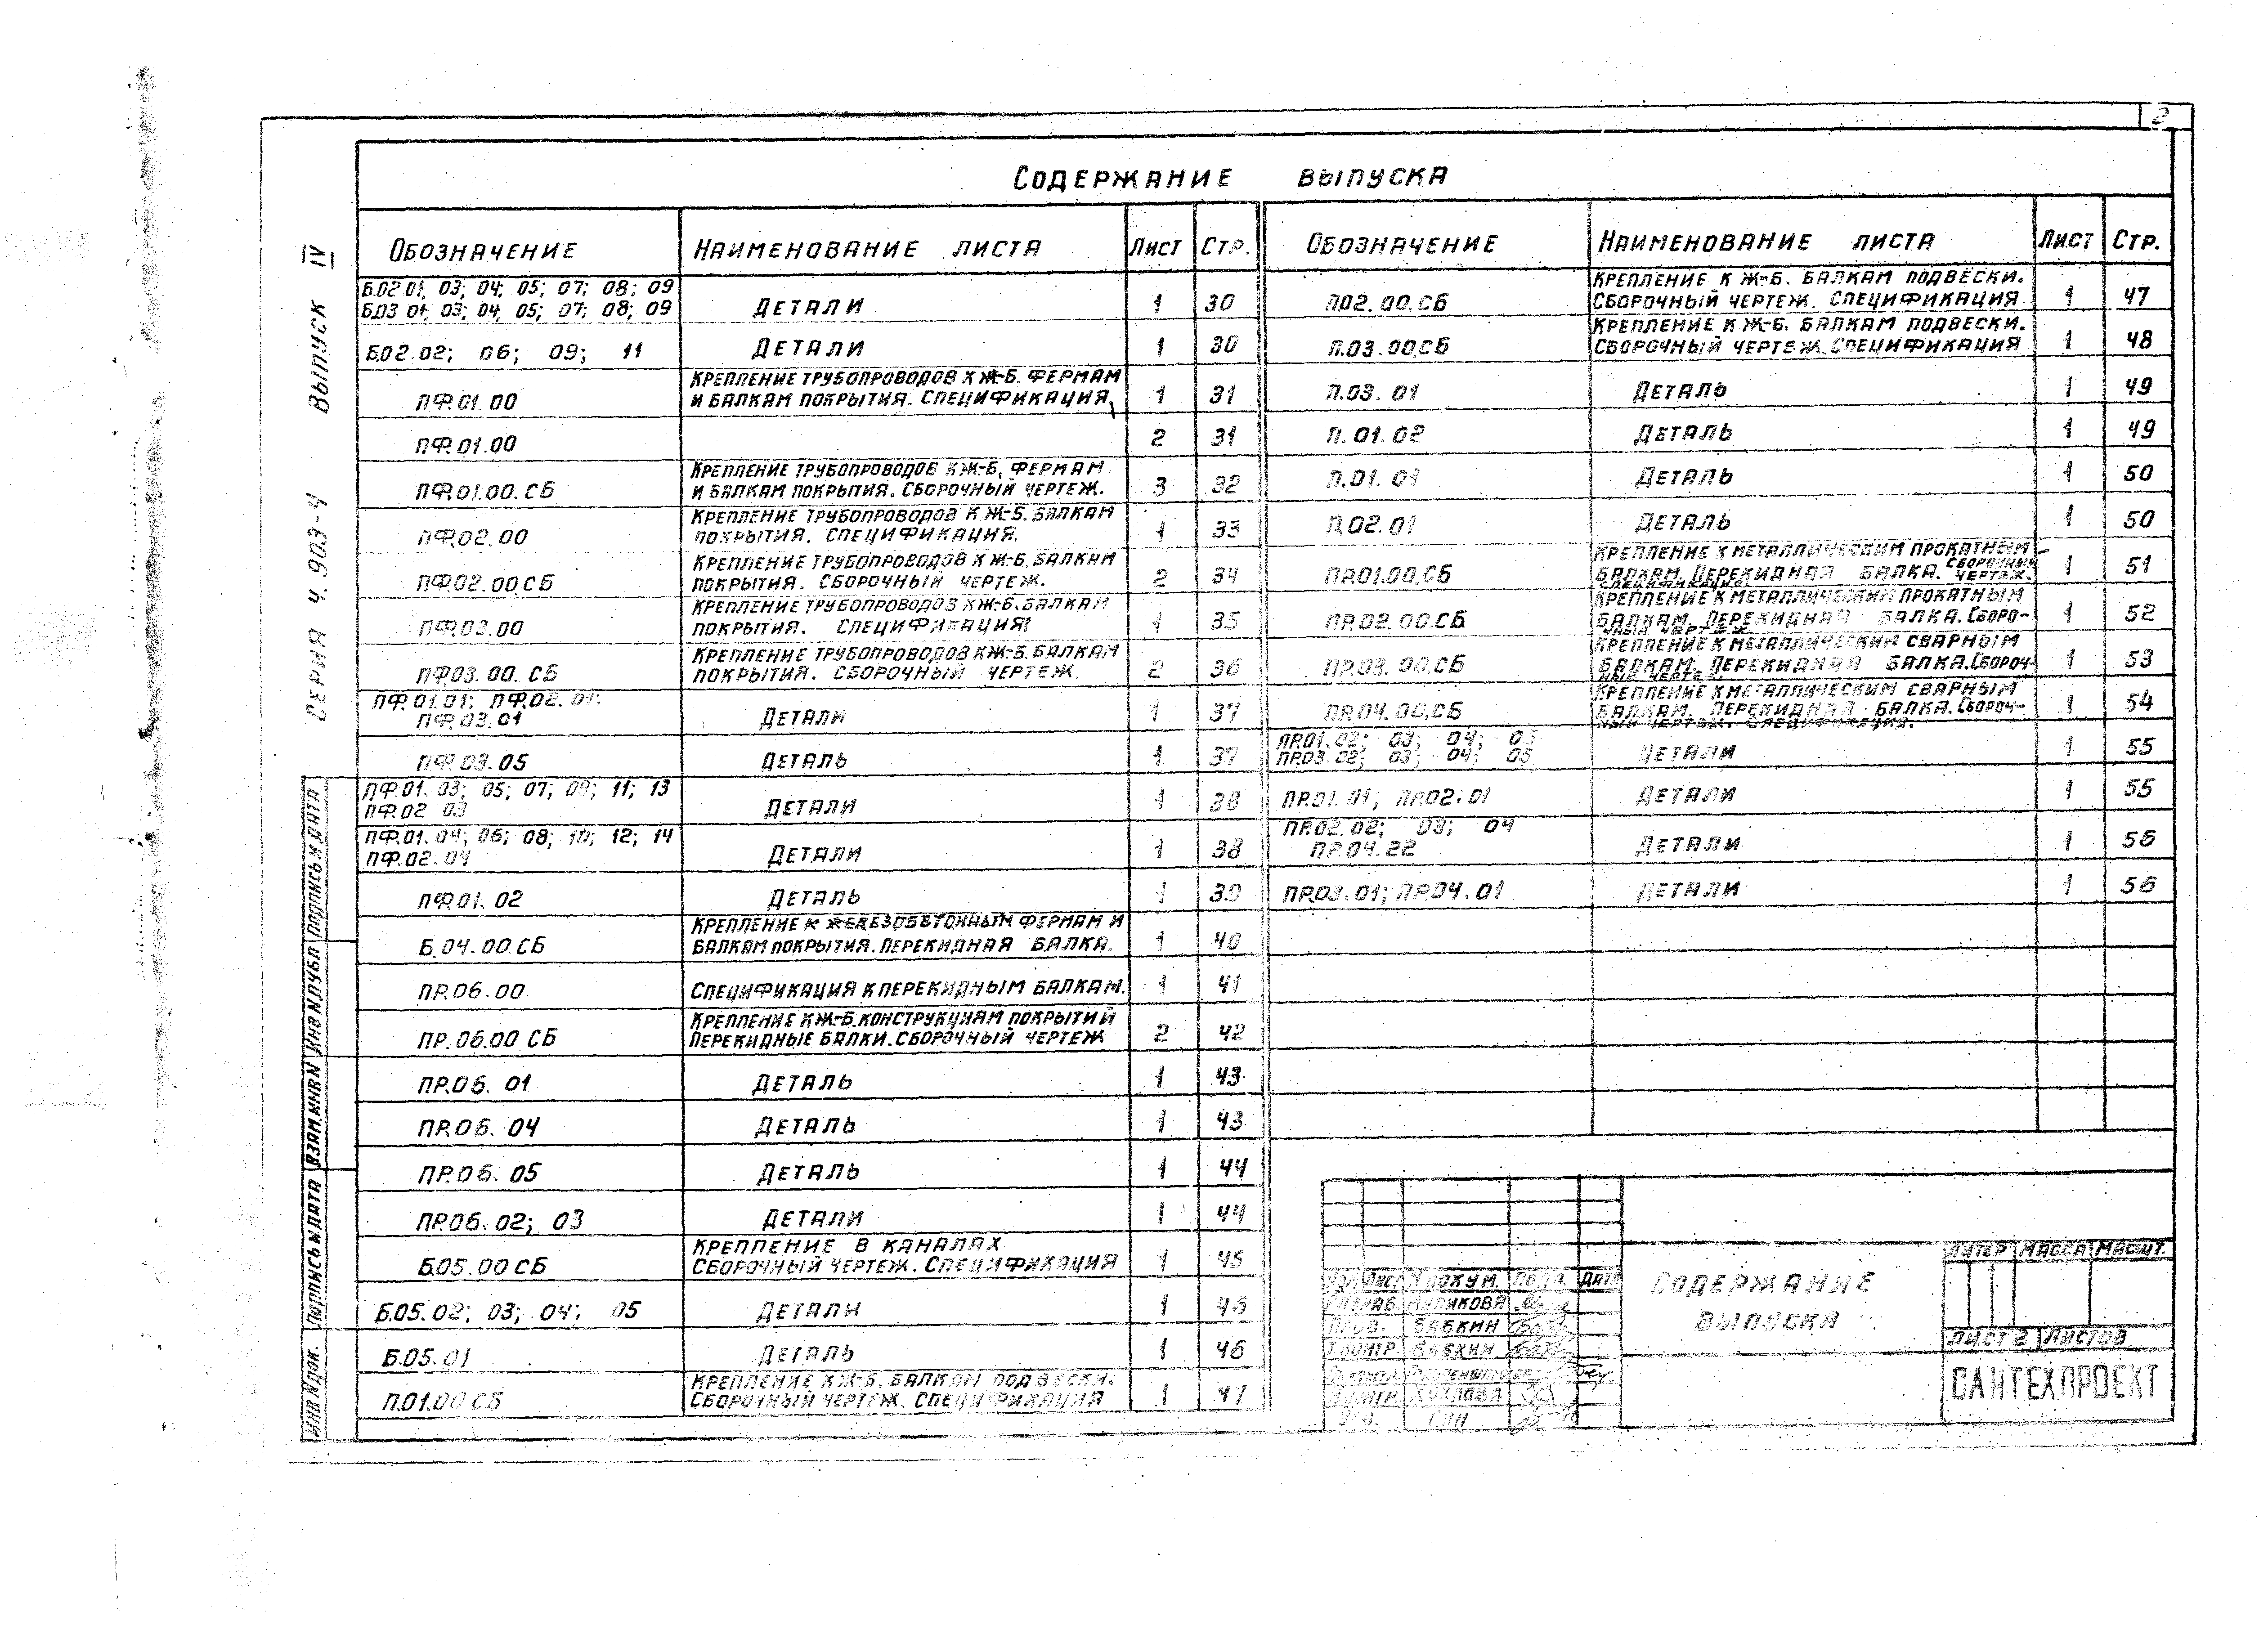 2
СОДЕРЖАНИЕ ВЫПУСКА
СЕРИЯ 4.903-4 ВЫПУСК IV
ОБОЗНАЧЕНИЕ НАИМЕНОВАНИЕ ЛИСТА ЛИСТ СТР.
Б.02 01; 03; 04; 05; 07; 08; 09
Б.03 01; 03; 04; 05; 07; 08; 09 ДЕТАЛИ 1 30
Б.02.02; 06; 09; 11 ДЕТАЛИ 1 30
КРЕПЛЕНИЕ ТРУБОПРОВОДОВ К Ж-Б. ФЕРМАМ
ПФ.01.00 И БАЛКАМ ПОКРЫТИЯ. СПЕЦИФИКАЦИЯ. 1 31
ПФ.01.00 2 31
КРЕПЛЕНИЕ ТРУБОПРОВОДОВ К Ж-Б. ФЕРМАМ
ПФ.01.00.СБ И БАЛКАМ ПОКРЫТИЯ. СБОРОЧНЫЙ ЧЕРТЕЖ. 3 32
КРЕПЛЕНИЕ ТРУБОПРОВОДОВ К Ж-Б. БАЛКАМ
ПФ.02.00 ПОКРЫТИЯ. СПЕЦИФИКАЦИЯ. 1 33
КРЕПЛЕНИЕ ТРУБОПРОВОДОВ К Ж-Б. БАЛКАМ
ПФ.02.00.СБ ПОКРЫТИЯ. СБОРОЧНЫЙ ЧЕРТЕЖ. 2 34
КРЕПЛЕНИЕ ТРУБОПРОВОДОВ К Ж-Б. БАЛКАМ
ПФ.03.00 ПОКРЫТИЯ. СПЕЦИФИКАЦИЯ 1 35
КРЕПЛЕНИЕ ТРУБОПРОВОДОВ К Ж-Б. БАЛКАМ
ПФ.03.00.СБ ПОКРЫТИЯ. СБОРОЧНЫЙ ЧЕРТЕЖ 2 36
ПФ.01.01; ПФ.02.01;
ПФ.03.01 ДЕТАЛИ 1 37
ПФ.03.05 ДЕТАЛЬ 1 37
ПФ.01.03; 05; 07; 09; 11; 13
ПФ.02 03 ДЕТАЛИ 1 38
ПФ.01.04; 06; 08; 10; 12; 14
ПФ.02.04 ДЕТАЛИ 1 38
ПФ.01.02 ДЕТАЛЬ 1 39
КРЕПЛЕНИЕ К ЖЕЛЕЗОБЕТОННЫМ ФЕРМАМ И
Б.04.00.СБ БАЛКАМ ПОКРЫТИЯ. ПЕРЕКИДНАЯ БАЛКА. 1 40
ПР.06.00 СПЕЦИФИКАЦИЯ К ПЕРЕКИДНЫМ БАЛКАМ. 1 41
КРЕПЛЕНИЕ К Ж-Б. КОНСТРУКЦИЯМ ПОКРЫТИЙ
ПР.06.00 СБ ПЕРЕКИДНЫЕ БАЛКИ. СБОРОЧНЫЙ ЧЕРТЕЖ 2 42
ПР.06.01 ДЕТАЛЬ 1 43
ПР.06.04 ДЕТАЛЬ 1 43
ПР.06.05 ДЕТАЛЬ 1 44
ПР.06.02; 03 ДЕТАЛИ 1 44
КРЕПЛЕНИЕ В КАНАЛАХ
Б.05.00 СБ СБОРОЧНЫЙ ЧЕРТЕЖ. СПЕЦИФИКАЦИЯ 1 45
Б.05.02; 03; 04; 05 ДЕТАЛИ 1 46
Б.05.01 ДЕТАЛЬ 1 46
КРЕПЛЕНИЕ К Ж-Б. БАЛКАМ ПОДВЕСКИ.
П.01.00 СБ СБОРОЧНЫЙ ЧЕРТЕЖ. СПЕЦИФИКАЦИЯ 1 47
ОБОЗНАЧЕНИЕ НАИМЕНОВАНИЕ ЛИСТА ЛИСТ СТР.
КРЕПЛЕНИЕ К Ж-Б. БАЛКАМ ПОДВЕСКИ.
П.02.00.СБ СБОРОЧНЫЙ ЧЕРТЕЖ. СПЕЦИФИКАЦИЯ 1 47
КРЕПЛЕНИЕ К Ж-Б. БАЛКАМ ПОДВЕСКИ.
П.03.00.СБ СБОРОЧНЫЙ ЧЕРТЕЖ. СПЕЦИФИКАЦИЯ 1 48
П.03.01 ДЕТАЛЬ 1 49
П.01.02 ДЕТАЛЬ 1 49
П.01.01 ДЕТАЛЬ 1 50
П.02.01 ДЕТАЛЬ 1 50
КРЕПЛЕНИЕ К МЕТАЛЛИЧЕСКИМ ПРОКАТНЫМ
ПР.01.00.СБ БАЛКАМ. ПЕРЕКИДНАЯ БАЛКА. СБОРОЧНЫЙ ЧЕРТЕЖ. 1 51
СПЕЦИФИКАЦИЯ.
КРЕПЛЕНИЕ К МЕТАЛЛИЧЕСКИМ ПРОКАТНЫМ
ПР.02.00.СБ БАЛКАМ. ПЕРЕКИДНАЯ БАЛКА. СБОРО- 1 52
ЧНЫЙ ЧЕРТЕЖ
КРЕПЛЕНИЕ К МЕТАЛЛИЧЕСКИМ СВАРНЫМ
ПР.03.00.СБ БАЛКАМ. ПЕРЕКИДНАЯ БАЛКА. СБОРОЧ- 1 53
НЫЙ ЧЕРТЕЖ.
КРЕПЛЕНИЕ К МЕТАЛЛИЧЕСКИМ СВАРНЫМ
ПР.04.00.СБ БАЛКАМ. ПЕРЕКИДНАЯ БАЛКА. СБОРОЧ- 1 54
НЫЙ ЧЕРТЕЖ. СПЕЦИФИКАЦИЯ.
ПР.01.02; 03; 04; 05
ПР.03.02; 03; 04; 05 ДЕТАЛИ 1 55
ПР.01.01; ПР.02.01 ДЕТАЛИ 1 55
ПР.02.02; 03; 04
ПР.04.22 ДЕТАЛИ 1 56
ПР.03.01; ПР.04.01 ДЕТАЛИ 1 56
ИНВ.N ДОК. ПОДПИСЬ И ДАТА ВЗАМ.ИНВ.N ИНВ.N ДУБЛ ПОДПИСЬ И ДАТА
ИЗМ ЛИСТ N ДОКУМ. ПОДП. ДАТА
РАЗРАБ
ПРОВ. БАБКИН
Т.КОНТР. БАБКИН
Н.КОНТР ХОХЛОВА
УТВ.
СОДЕРЖАНИЕ
ВЫПУСКА
ЛИТЕР МАССА МАСШТ.
ЛИСТ 2 ЛИСТОВ
САНТЕХПРОЕКТ